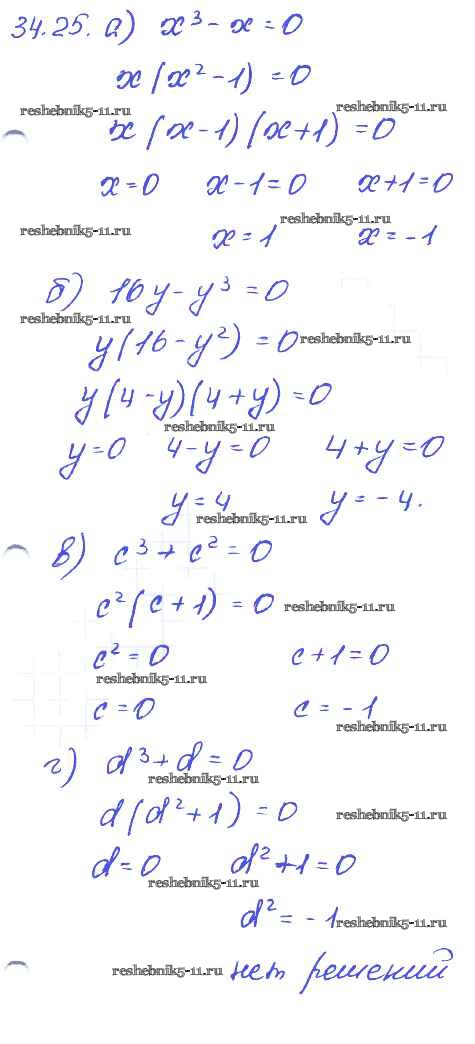 34.25. а) x³ - x = 0
x(x² - 1) = 0
reshebnik5-11.ru reshebnik5-11.ru
x(x - 1)(x + 1) = 0
x = 0 x - 1 = 0 x + 1 = 0
reshebnik5-11.ru
reshebnik5-11.ru
x = 1 x = -1
б) 16y - y³ = 0
reshebnik5-11.ru
y(16 - y²) = 0 reshebnik5-11.ru
y(4 - y)(4 + y) = 0
reshebnik5-11.ru
y = 0 4 - y = 0 4 + y = 0
y = 4 y = -4.
reshebnik5-11.ru
в) c³ + c² = 0
c²(c + 1) = 0 reshebnik5-11.ru
c² = 0 c + 1 = 0
reshebnik5-11.ru
c = 0 c = -1
reshebnik5-11.ru
г) d³ + d = 0
reshebnik5-11.ru
d(d² + 1) = 0 reshebnik5-11.ru
d = 0 d² + 1 = 0
reshebnik5-11.ru
d² = -1 reshebnik5-11.ru
reshebnik5-11.ru нет решений